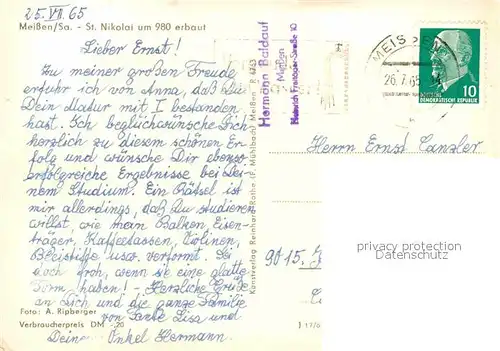 25. VII. 65
Meißen/Sa. - St. Nikolai um 980 erbaut
Lieber Ernst!
Zu meiner großen Freude
erfuhr ich von Anna, daß Du
Dein Matur mit I bestanden
hast. Ich beglückwünsche Dich
herzlich zu diesem schönen Er-
folg und wünsche Dir ebenso
erfolgreiche Ergebnisse bei Dei-
nem Studium. Ein Rätsel ist
mir allerdings, daß Du studieren
willst, wie man Balken, Eisen-
träger, Kaffeetassen, Violinen,
Bleistifte usw. verformt. Sei
doch froh, wenn sie eine glatte
Form haben! - Herzliche Grüße
an Dich und die ganze Familie
von Tante Lisa und
Deinem Onkel Hermann.
Foto: A. Ripberger
Verbraucherpreis DM -,20
Kunstverlag Reinhard Rothe (F. Mühlbach) Meißen
Hermann Baldauf
Meißen
MEISSEN
26.7.65
10
DEUTSCHE
DEMOKRATISCHE REPUBLIK
Herrn Ernst Canzler
9015.
privacy protection
Datenschutz